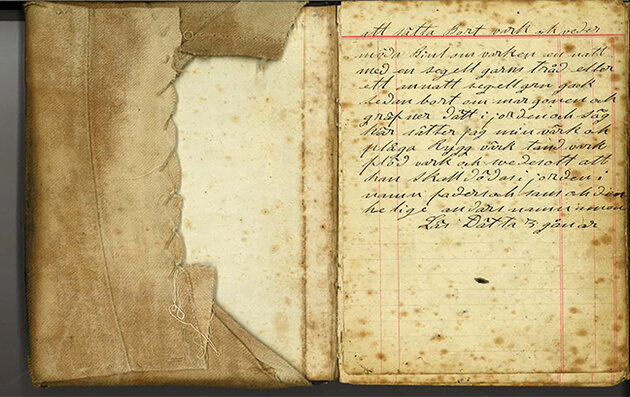 att sätta Bort värk ok veder
möda Bint om värken en natt
med en segell garns tråd eller
ett annatt segell grn gack
sedan bort om margonen och
gräfner dätt i jorden och säg
här sätter jag min värk ok
plåga Rygg värk tand värk
flåd värk ok wedersatt att
han skall dödas i jorden i
namn faders och sons och den
he lige andars namn amen
Läs Dätta 3 gånar